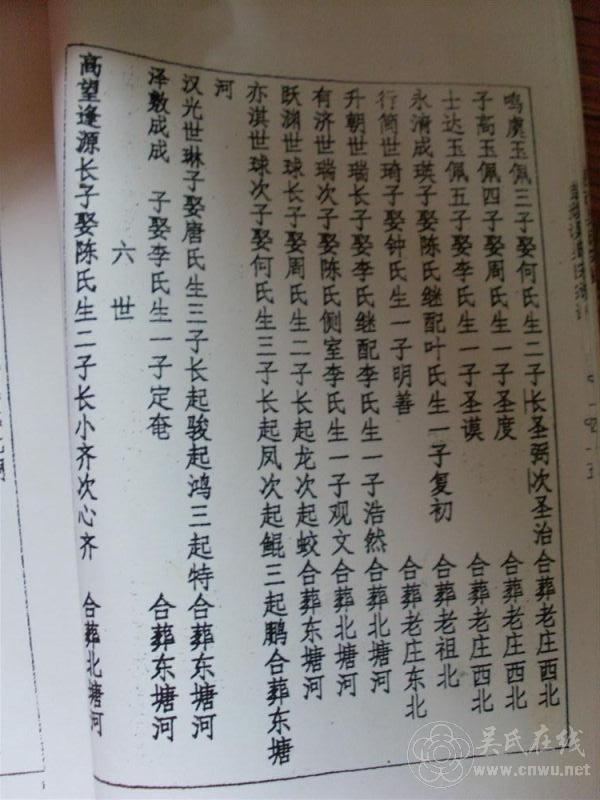 鸣虞玉佩三子娶何氏生二子长圣弼次圣治合葬老庄西北
子高玉佩四子娶周氏生一子圣度 合葬老庄西北
士达玉佩五子娶李氏生一子圣谟 合葬老庄西北
永清成瑛子娶陈氏继配叶氏生一子复初 合葬老祖北
行简世琦子娶钟氏生一子明善 合葬老庄东北
升朝世瑞长子娶李氏继配李氏生一子浩然合葬北塘河
有济世瑞次子娶陈氏侧室李氏生一子观文合葬北塘河
跃渊世球长子娶周氏生二子长起龙次起蛟合葬东塘河
亦淇世球次子娶何氏生三子长起凤次起鲲三起鹏合葬东塘
河
汉光世琳子娶唐氏生三子长起骏起鸿三起特合葬东塘河
泽敷成成 子娶李氏生一子定奄 合葬东塘河
六世
高望逢源长子娶陈氏生二子长小齐次心齐 合葬北塘河
吴氏在线
www.cnwu.net